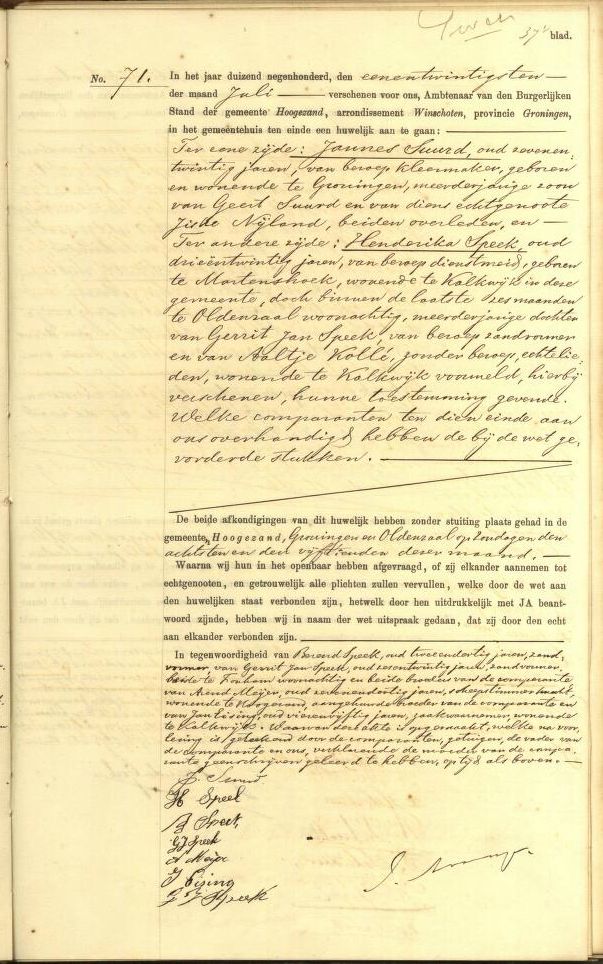 37 blad.
No. 71. In het jaar duizend negenhonderd, den eenentwintigsten
der maand Juli verschenen voor ons, Ambtenaar van den Burgerlijken
Stand der gemeente Hoogezand, arrondissement Winschoten, provincie Groningen,
in het gemeentehuis ten einde een huwelijk aan te gaan:
Ter eene zijde: Jannes Suurd, oud zevenen
twintig jaren, van beroep kleermaker, geboren
en wonende te Groningen, meerderjarige zoon
van Geert Suurd en van diens echtgenoote
Nijland, beiden overleden, en
Ter andere zijde: Henderika Speek, oud
drieëntwintig jaren, van beroep dienstmeid, geboren
te Martenshoek, wonende te Kalkwijk in deze
gemeente, doch binnen de laatste zes maanden
te Oldenzaal woonachtig, meerderjarige dochter
van Gerrit Jan Speek, van beroep zandvormer
en van Aaltje Kollé, zonder beroep, echtelie-
den, wonende te Kalkwijk voormeld, hierbij
verschenen, hunne toestemming gevende.
Welke comparanten ten dien einde aan
ons overhandigd hebben de bij de wet ge-
vorderde stukken.
De beide afkondigingen van dit huwelijk hebben zonder stuiting plaats gehad in de
gemeente Hoogezand, Groningen en Oldenzaal op Zondagen den
achtsten en den vijftienden dezer maand.
Waarna wij hun in het openbaar hebben afgevraagd, of zij elkander aannemen tot
echtgenooten, en getrouwelijk alle plichten zullen vervullen, welke door de wet aan
den huwelijken staat verbonden zijn, hetwelk door hen uitdrukkelijk met JA beant-
woord zijnde, hebben wij in naam der wet uitspraak gedaan, dat zij door den echt
aan elkander verbonden zijn.
In tegenwoordigheid van Berend Speek, oud tweeendertig jaren, zand-
vormer, van Gerrit Jan Speek, oud zesentwintig jaren, zandvormer,
beide te Foxham woonachtig en beide broeders van de comparante
van Arend Meijer, oud zevenendertig jaren, scheepstimmerknecht,
wonende te Hoogezand, aangehuwde broeder van de comparante en
van Jan Eising, oud vierenvijftig jaren, zaakwaarnemer, wonende
te Kalkwijk. Waarvan deze akte is opgemaakt, welke na voor-
lezing is geteekend door de comparanten, getuigen, de vader van
de comparante en ons, verklarende de moeder van de compa-
rante geen schrijven geleerd te hebben, op tijd als boven.
J. Suurd
H Speek
B Speek
G J Speek
A Meijer
J Eising
G J Speek